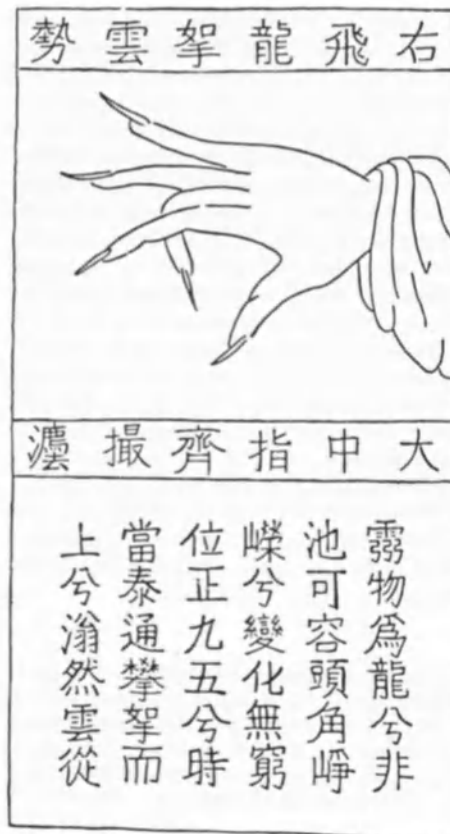 右飛龍拏雲勢
大中指齊撮
霛物爲龍兮非
池可容頭角崢
嶸兮變化無窮
位正九五兮時
當泰通攀拏而
上兮滃然雲從